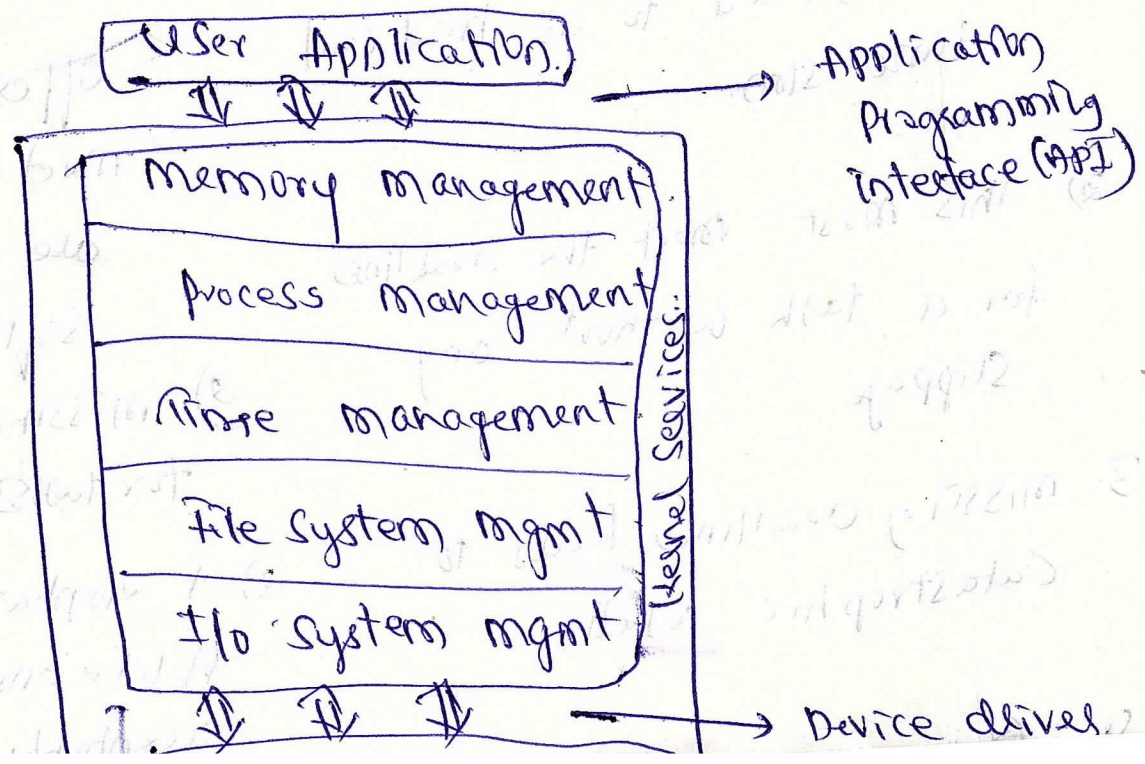 User Application
Application
Programming
interface (API)
Memory management
process management
Time management
File system mgmt
I/o system mgmt
Kernel Services
Device driver.